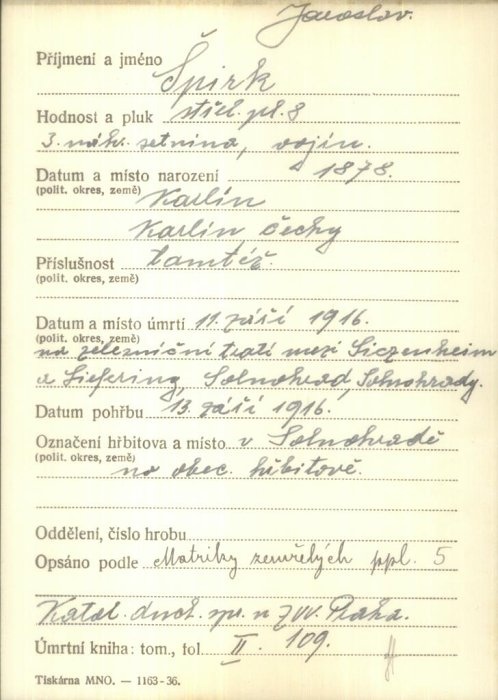 Jaroslav.
Příjmení a jméno
Špirk
Hodnost a pluk střel. pl. 8
3. náhr. setnina, vojín.
Datum a místo narození 1878.
(polit. okres, země) Karlín
Karlín Čechy
Příslušnost tamtéž.
(polit. okres, země)
Datum a místo úmrtí 11. září 1916.
(polit. okres, země)
na železniční trati mezi Siezenheim
a Liefering, Solnohrad, Solnohrady.
Datum pohřbu 13. září 1916.
Označení hřbitova a místo v Solnohradě
(polit. okres, země)
na obec. hřbitově.
Oddělení, číslo hrobu
Opsáno podle Matriky zemřelých ppl. 5
Katol. duch. spr. u ZVV. Praha.
Úmrtní kniha: tom., fol. II. 109.
Tiskárna MNO. — 1163-36.